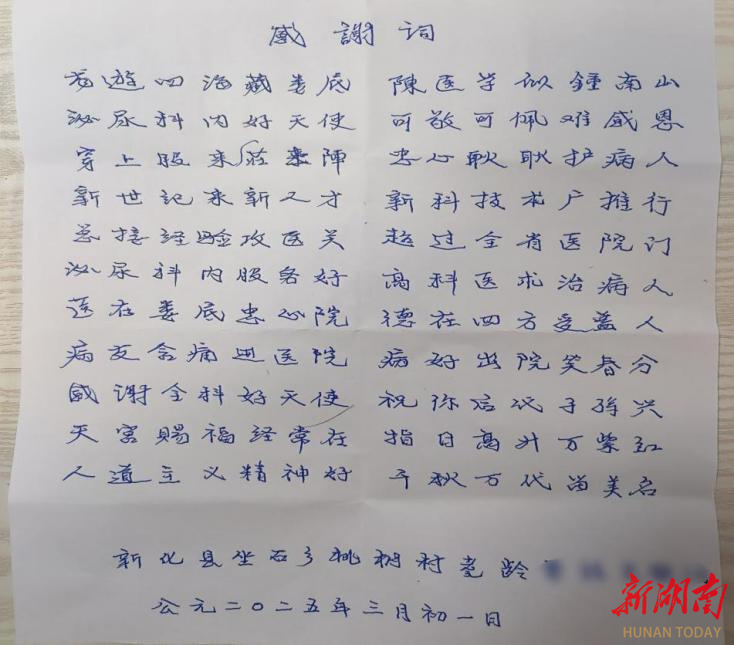 感謝词
名遊四海藏娄底 陳医学似鍾南山
泌尿科内好天使 可敬可佩难感恩
穿上服来 陣 忠心耿耿护病人
新世記来新人才 新科技术广推行
总接经验攻医关 超过全省医院门
泌尿科内服务好 高科医术治病人
医在娄底忠心院 德在四方受益人
病友含痛进医院 病好出院笑春分
感谢全科好天使 祝你后代子孫兴
天宫赐福经常在 指日高升万紫红
人道主义精神好 千秋万代留美名
新化县坐石乡桃树村耄龄
公元二〇二五年三月初一日
新湖南
HUNAN TODAY